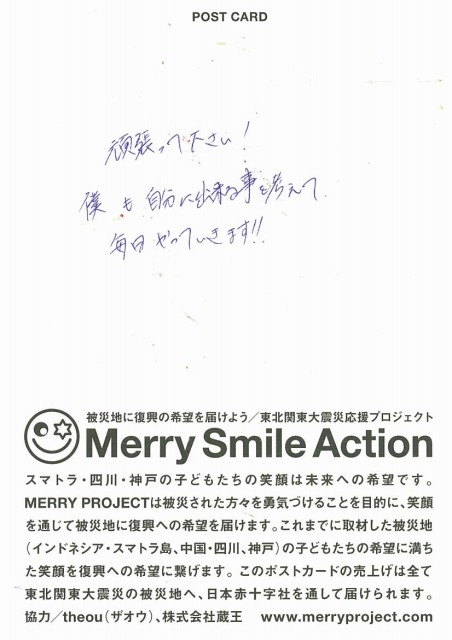 POST CARD
頑張って下さい!
僕も自分に出来る事を考えて
毎日やっていきます!!
被災地に復興の希望を届けよう／東北関東大震災応援プロジェクト
Merry Smile Action
スマトラ・四川・神戸の子どもたちの笑顔は未来への希望です。
MERRY PROJECTは被災された方々を勇気づけることを目的に、笑顔
を通じて被災地に復興への希望を届けます。これまでに取材した被災地
（インドネシア・スマトラ島、中国・四川、神戸）の子どもたちの希望に満ち
た笑顔を復興への希望に繋げます。このポストカードの売上げは全て
東北関東大震災の被災地へ、日本赤十字社を通して届けられます。
協力／theou（ザオウ）、株式会社蔵王 www.merryproject.com